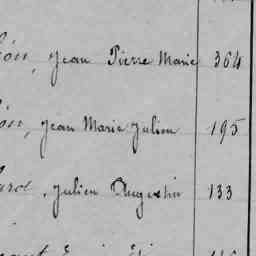 ion, Jean Pierre Marie 364
ion, Jean Marie Julien 195
Julien Augustin 133